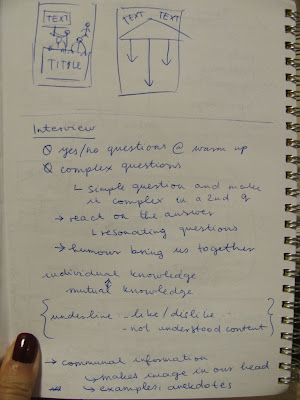 TEXT
TITLE
TEXT TEXT
Interview
yes/no questions @ warm up
complex questions
simple question and make
it complex in a 2nd q
→ react on the answer
resonating questions
→ humour bring us together
individual knowledge
mutual knowledge
underline - like/dislike
- not understood content
→ communal information
makes image in our head
→ examples, anekdotes